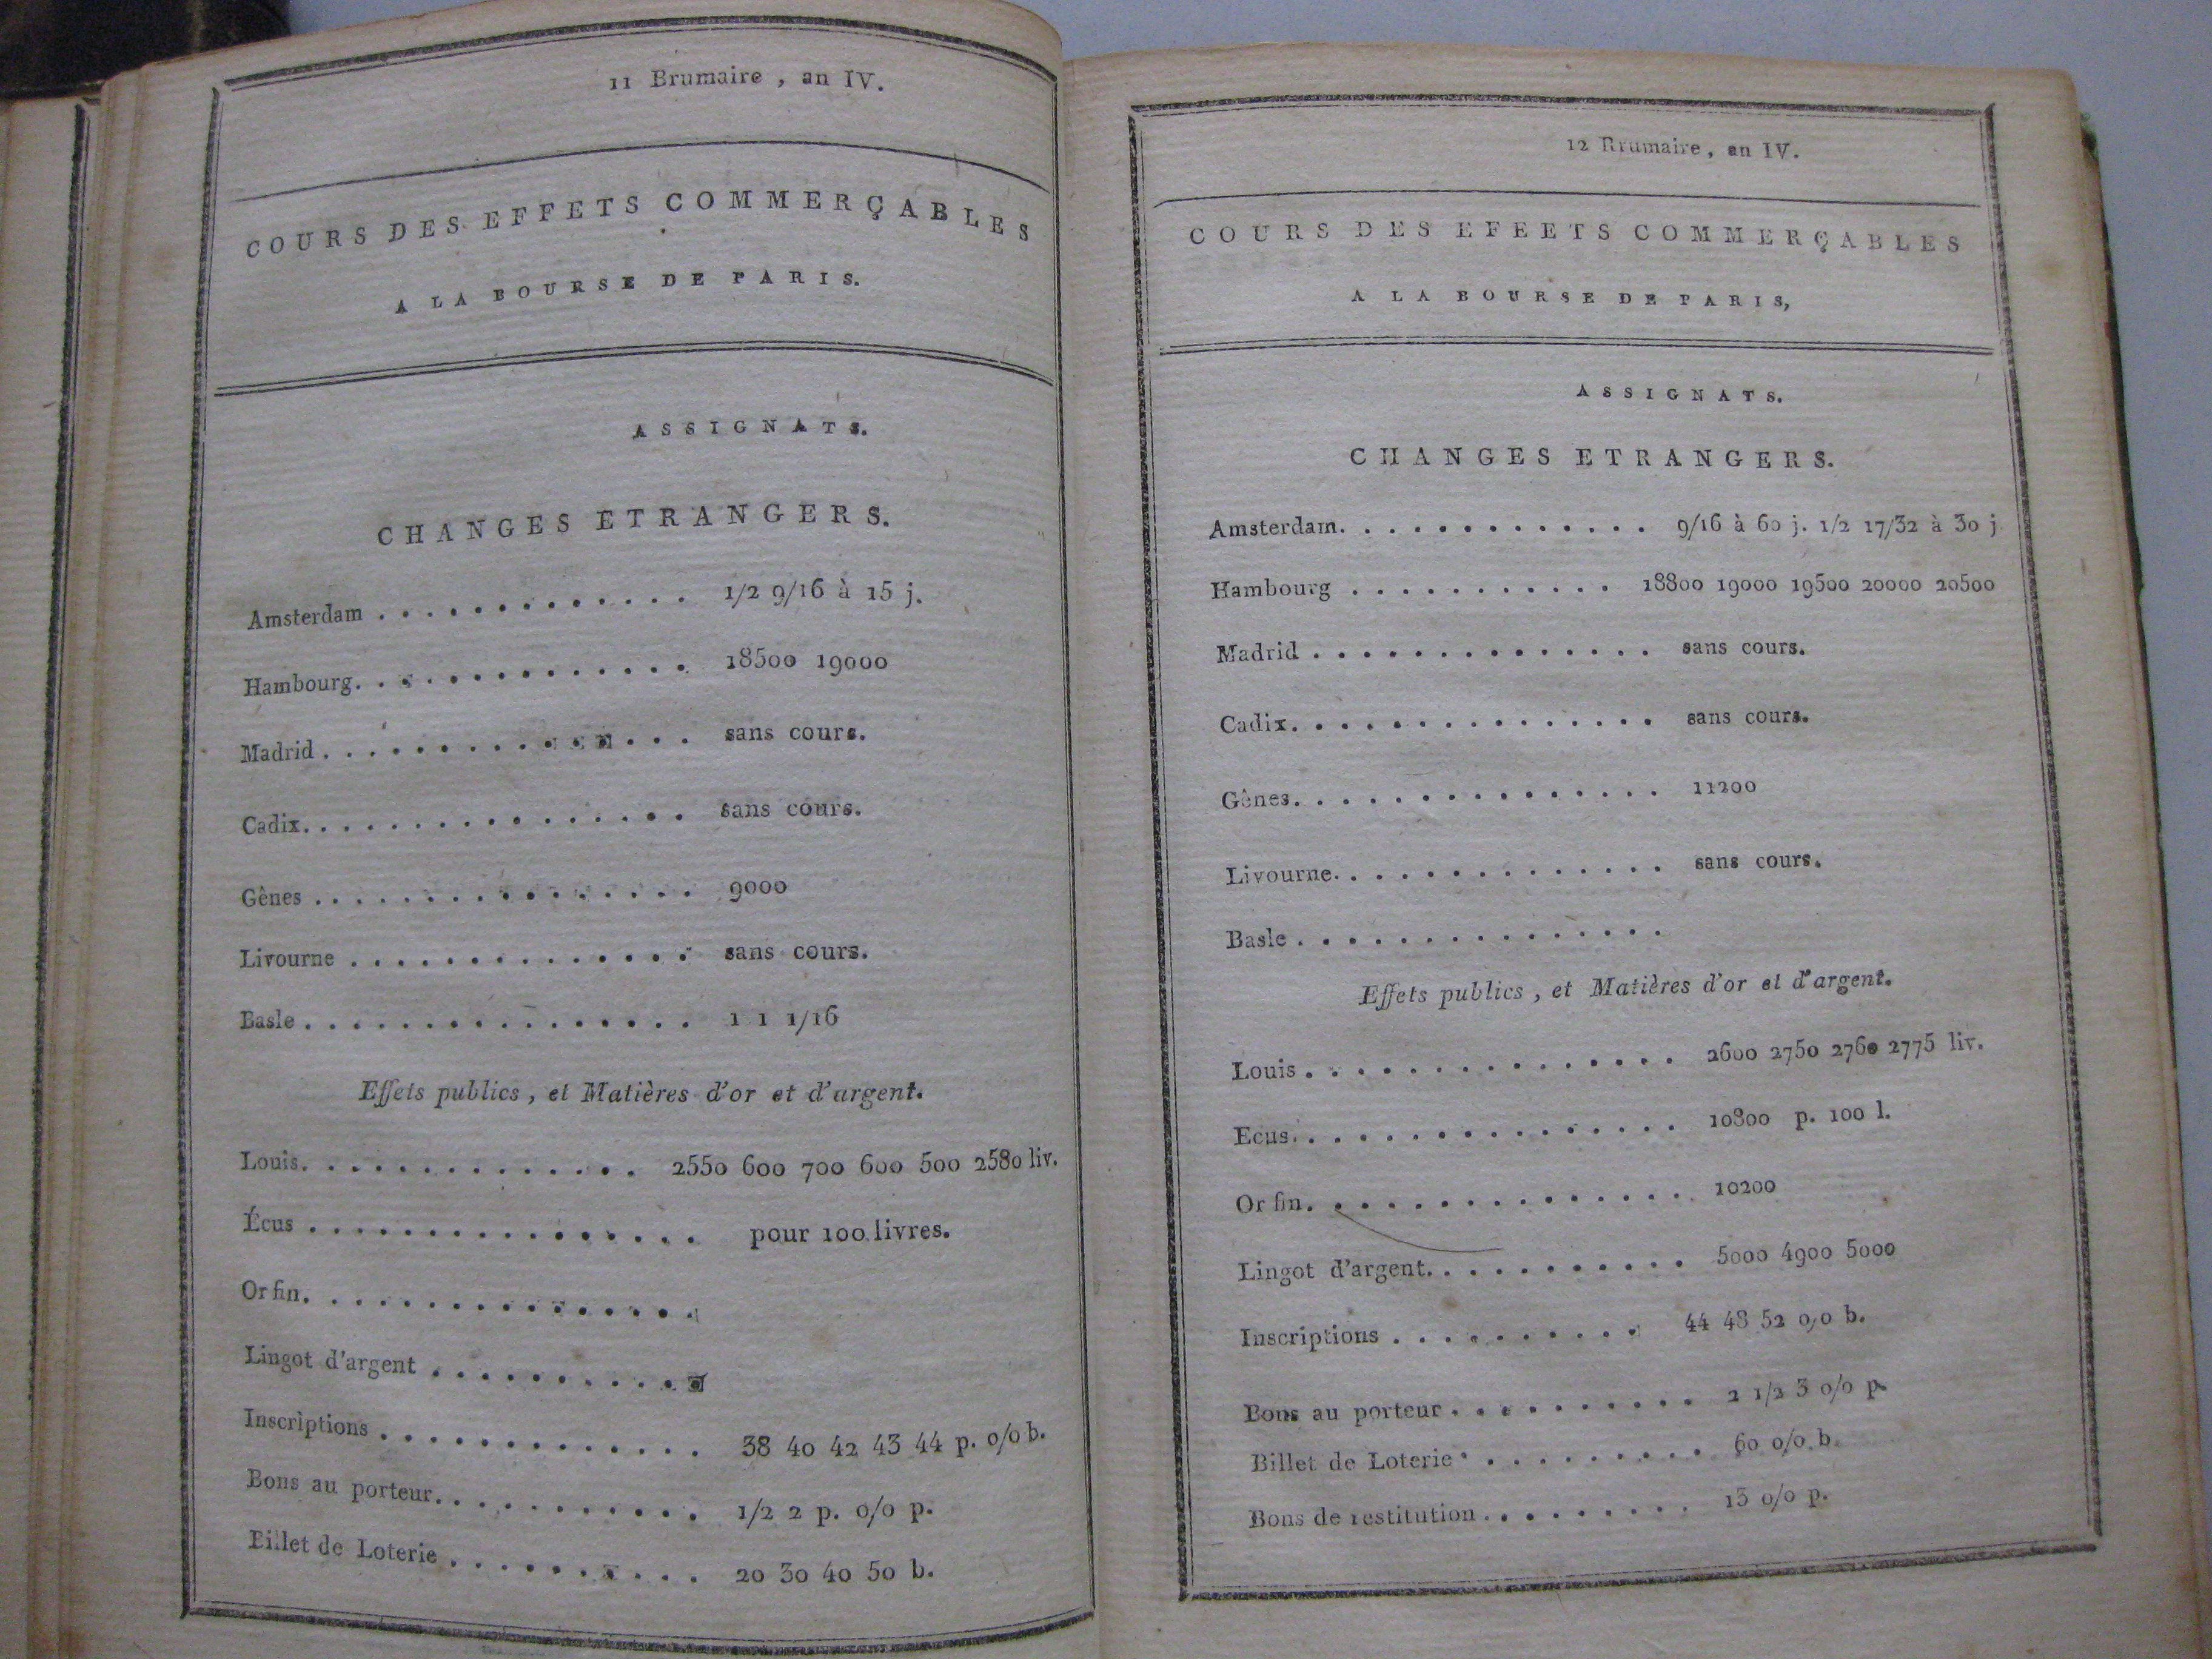 11 Brumaire , an IV.
COURS DES EFFETS COMMERÇABLES
A LA BOURSE DE PARIS.
ASSIGNATS.
CHANGES ETRANGERS.
Amsterdam . . . . . . . . . . . . . 1/2 9/16 à 15 j.
Hambourg. . . . . . . . . . . . . . 18500 19000
Madrid . . . . . . . . . . . . . . . sans cours.
Cadix. . . . . . . . . . . . . . . . sans cours.
Gênes . . . . . . . . . . . . . . . . 9000
Livourne . . . . . . . . . . . . . . sans cours.
Basle . . . . . . . . . . . . . . . . 1 1 1/16
Effets publics , et Matières d'or et d'argent.
Louis. . . . . . . . . . . . . . . 2550 600 700 600 500 2580 liv.
Écus . . . . . . . . . . . . . . . . pour 100 livres.
Or fin. . . . . . . . . . . . . . . . .
Lingot d'argent . . . . . . . . . . . .
Inscriptions . . . . . . . . . . . . . 38 40 42 43 44 p. 0/0 b.
Bons au porteur. . . . . . . . . . . . 1/2 2 p. 0/0 p.
Billet de Loterie . . . . . . . . . . . 20 30 40 50 b.
12 Brumaire, an IV.
COURS DES EFEETS COMMERÇABLES
A LA BOURSE DE PARIS,
ASSIGNATS.
CHANGES ETRANGERS.
Amsterdam. . . . . . . . . . . . . 9/16 à 60 j. 1/2 17/32 à 30 j
Hambourg . . . . . . . . . . . 18800 19000 19500 20000 20500
Madrid . . . . . . . . . . . . . . sans cours.
Cadix. . . . . . . . . . . . . . . sans cours.
Gênes. . . . . . . . . . . . . . . 11200
Livourne. . . . . . . . . . . . . . sans cours.
Basle . . . . . . . . . . . . . . .
Effets publics , et Matières d'or et d'argent.
Louis . . . . . . . . . . . . . . . 2600 2750 2760 2775 liv.
Ecus. . . . . . . . . . . . . . . . 10800 p. 100 l.
Or fin. . . . . . . . . . . . . . . 10200
Lingot d'argent. . . . . . . . . . . 5000 4900 5000
Inscriptions . . . . . . . . . . 44 48 52 0/0 b.
Bons au porteur . . . . . . . . . . 2 1/2 3 0/0 p.
Billet de Loterie . . . . . . . . . . 60 0/0 b.
Bons de restitution . . . . . . . . . 15 0/0 p.